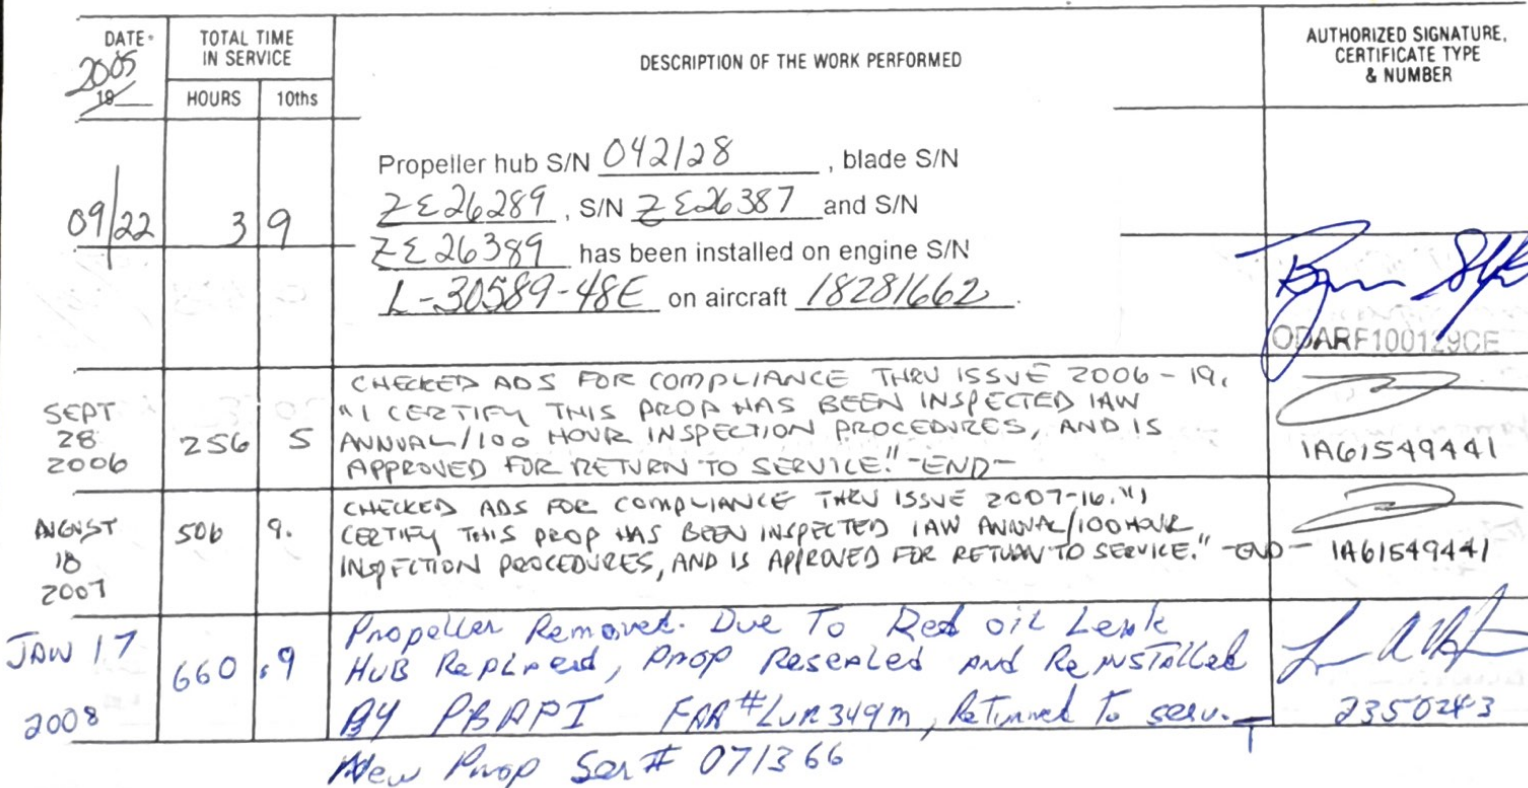 DATE
2005
19
TOTAL TIME
IN SERVICE
HOURS 10ths
DESCRIPTION OF THE WORK PERFORMED
AUTHORIZED SIGNATURE,
CERTIFICATE TYPE
& NUMBER
09/22 3 9
Propeller hub S/N 042128, blade S/N
ZE26289, S/N ZE26387 and S/N
ZE26389 has been installed on engine S/N
L-30589-48E on aircraft 18281662.
ODARF100129CE
SEPT
28
2006
256 5
CHECKED ADS FOR COMPLIANCE THRU ISSUE 2006-19.
"I CERTIFY THIS PROP HAS BEEN INSPECTED IAW
ANNUAL/100 HOUR INSPECTION PROCEDURES, AND IS
APPROVED FOR RETURN TO SERVICE." -END-
IA61549441
AUGUST
18
2007
506 9.
CHECKED ADS FOR COMPLIANCE THRU ISSUE 2007-16. "I
CERTIFY THIS PROP HAS BEEN INSPECTED IAW ANNUAL/100 HOUR
INSPECTION PROCEDURES, AND IS APPROVED FOR RETURN TO SERVICE." -END-
IA61549441
JAN 17
2008
660 .9
Propeller Removed. Due To Red oil Leak
HUB Replaced, Prop Resealed and Reinstalled
By PBAPI FAR #LUR349M, Returned To serv.
2350243
New Prop Ser# 071366